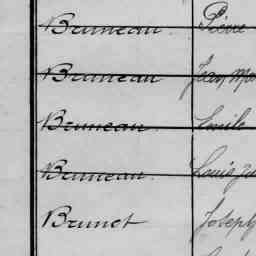 Bruneau Pierre
Bruneau Jean
Bruneau Emile
Bruneau Louis
Brunet Joseph